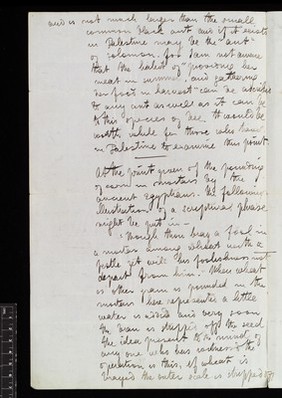 and is not much larger than the small
common black ant and if it exists
in Palestine may be the "ant"
of Solomon for I am not aware
that the habit of "providing her
meat in summer, and gathering
her food in harvest" can be ascribed
to any ant as well as it can be
to this species of . It would be
worth while for those who
in Palestine to examine this point.
At the point given of the pounding
of corn in mortars by the
ancient egyptians. the following
illustration of a scriptural phrase
might be put in -
"Though thou bray a fool in
a mortar among wheat with a
pestle yet will his foolishness not
depart from him." When wheat
or other grain is pounded in the
mortars I have represented a little
water is added and very soon
the bran is stripped off the seed
the idea present to the mind of
any one who has witnessed the
operation is this, if wheat is
brayed the outer scale is stripped off